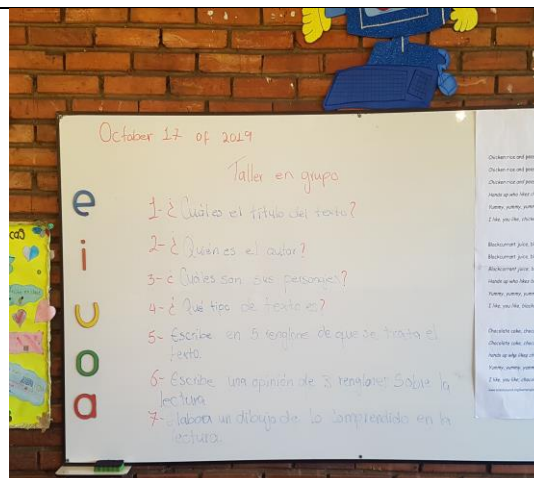 October 17 of 2019
Taller en grupo
1- ¿Cuál es el título del texto?
2- ¿Quién es el autor?
3- ¿Cuáles son sus personajes?
4- ¿Qué tipo de texto es?
5- Escribe en 5 renglone de que se trata el
texto.
6- Escribe una opinión de 3 renglones Sobre la
lectura
7- labora un dibujo de lo comprendido en la
lectura.
e
i
u
o
a
Chicken rice and peas
Chicken rice and peas
Chicken rice and peas
Hands up who likes
Yummy, yummy, yumm
I like, you like, chicke
Blackcurrant juice, b
Blackcurrant juice, b
Blackcurrant juice, b
Hands up who likes b
Yummy, yummy, yumm
I like, you like, black
Chocolate cake, choc
Chocolate cake, choc
Chocolate cake, choc
hands up who likes ch
Yummy, yummy, yumm
I like, you like, choco